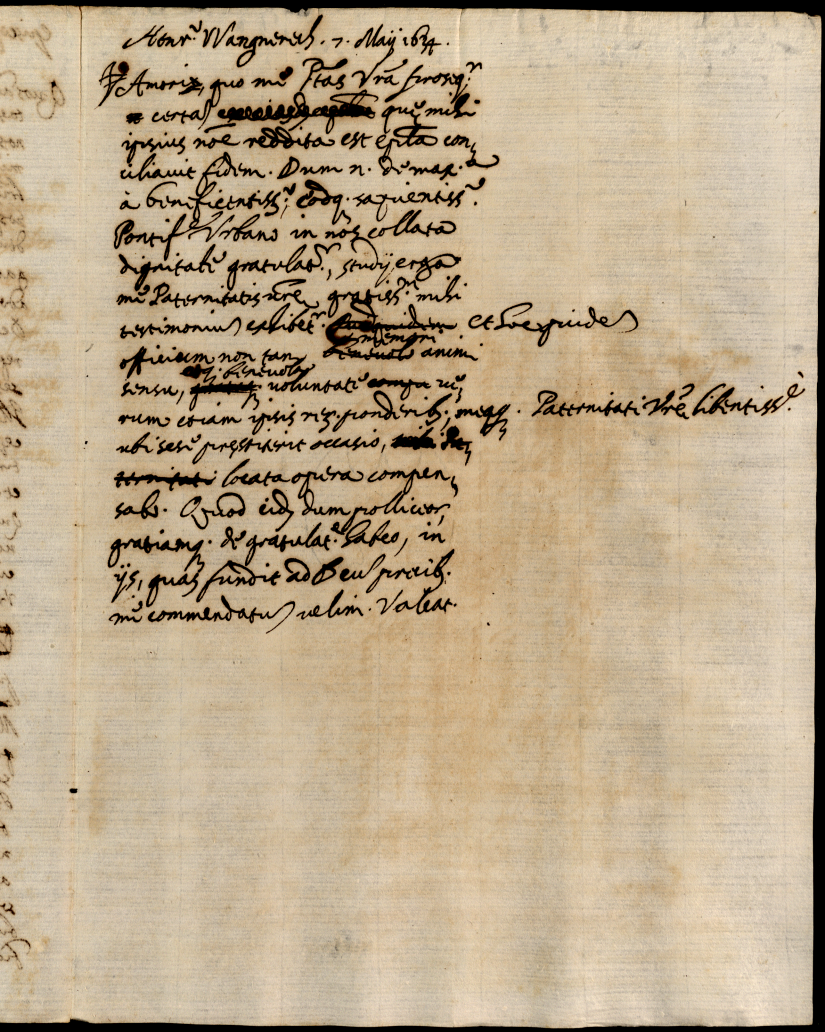 Henr. Wangnereck. 7. Maij 1634.
Amoris, quo me Ptas Vra proseq.r
certam quę mihi
ipsius noē reddita est epła con„
ciliavit fidem. Dum n. de max.a
à beneficentiss.o, eodq. sapientiss.o
Pontif.e Urbano in nos collata
dignitate gratulat.r, studij erga
me Paternitatis vrę gratiss.m mihi
testimonium exhibet. et hoc quidem
immemori
officium non tam benevolo animi
benevola
sensu, voluntate ve„
rum etiam ipsis rez. ponderib., meaq. Paternitati Vrę libentiss.e
ubi sese prestiterit occasio,
locata opera compen„
sabo. Quod eid dum polliceor,
gratiamq. de gratulat.e habeo, in
ijs, quas fundit ad Deum precib.
me commendatum velim. Valeat.